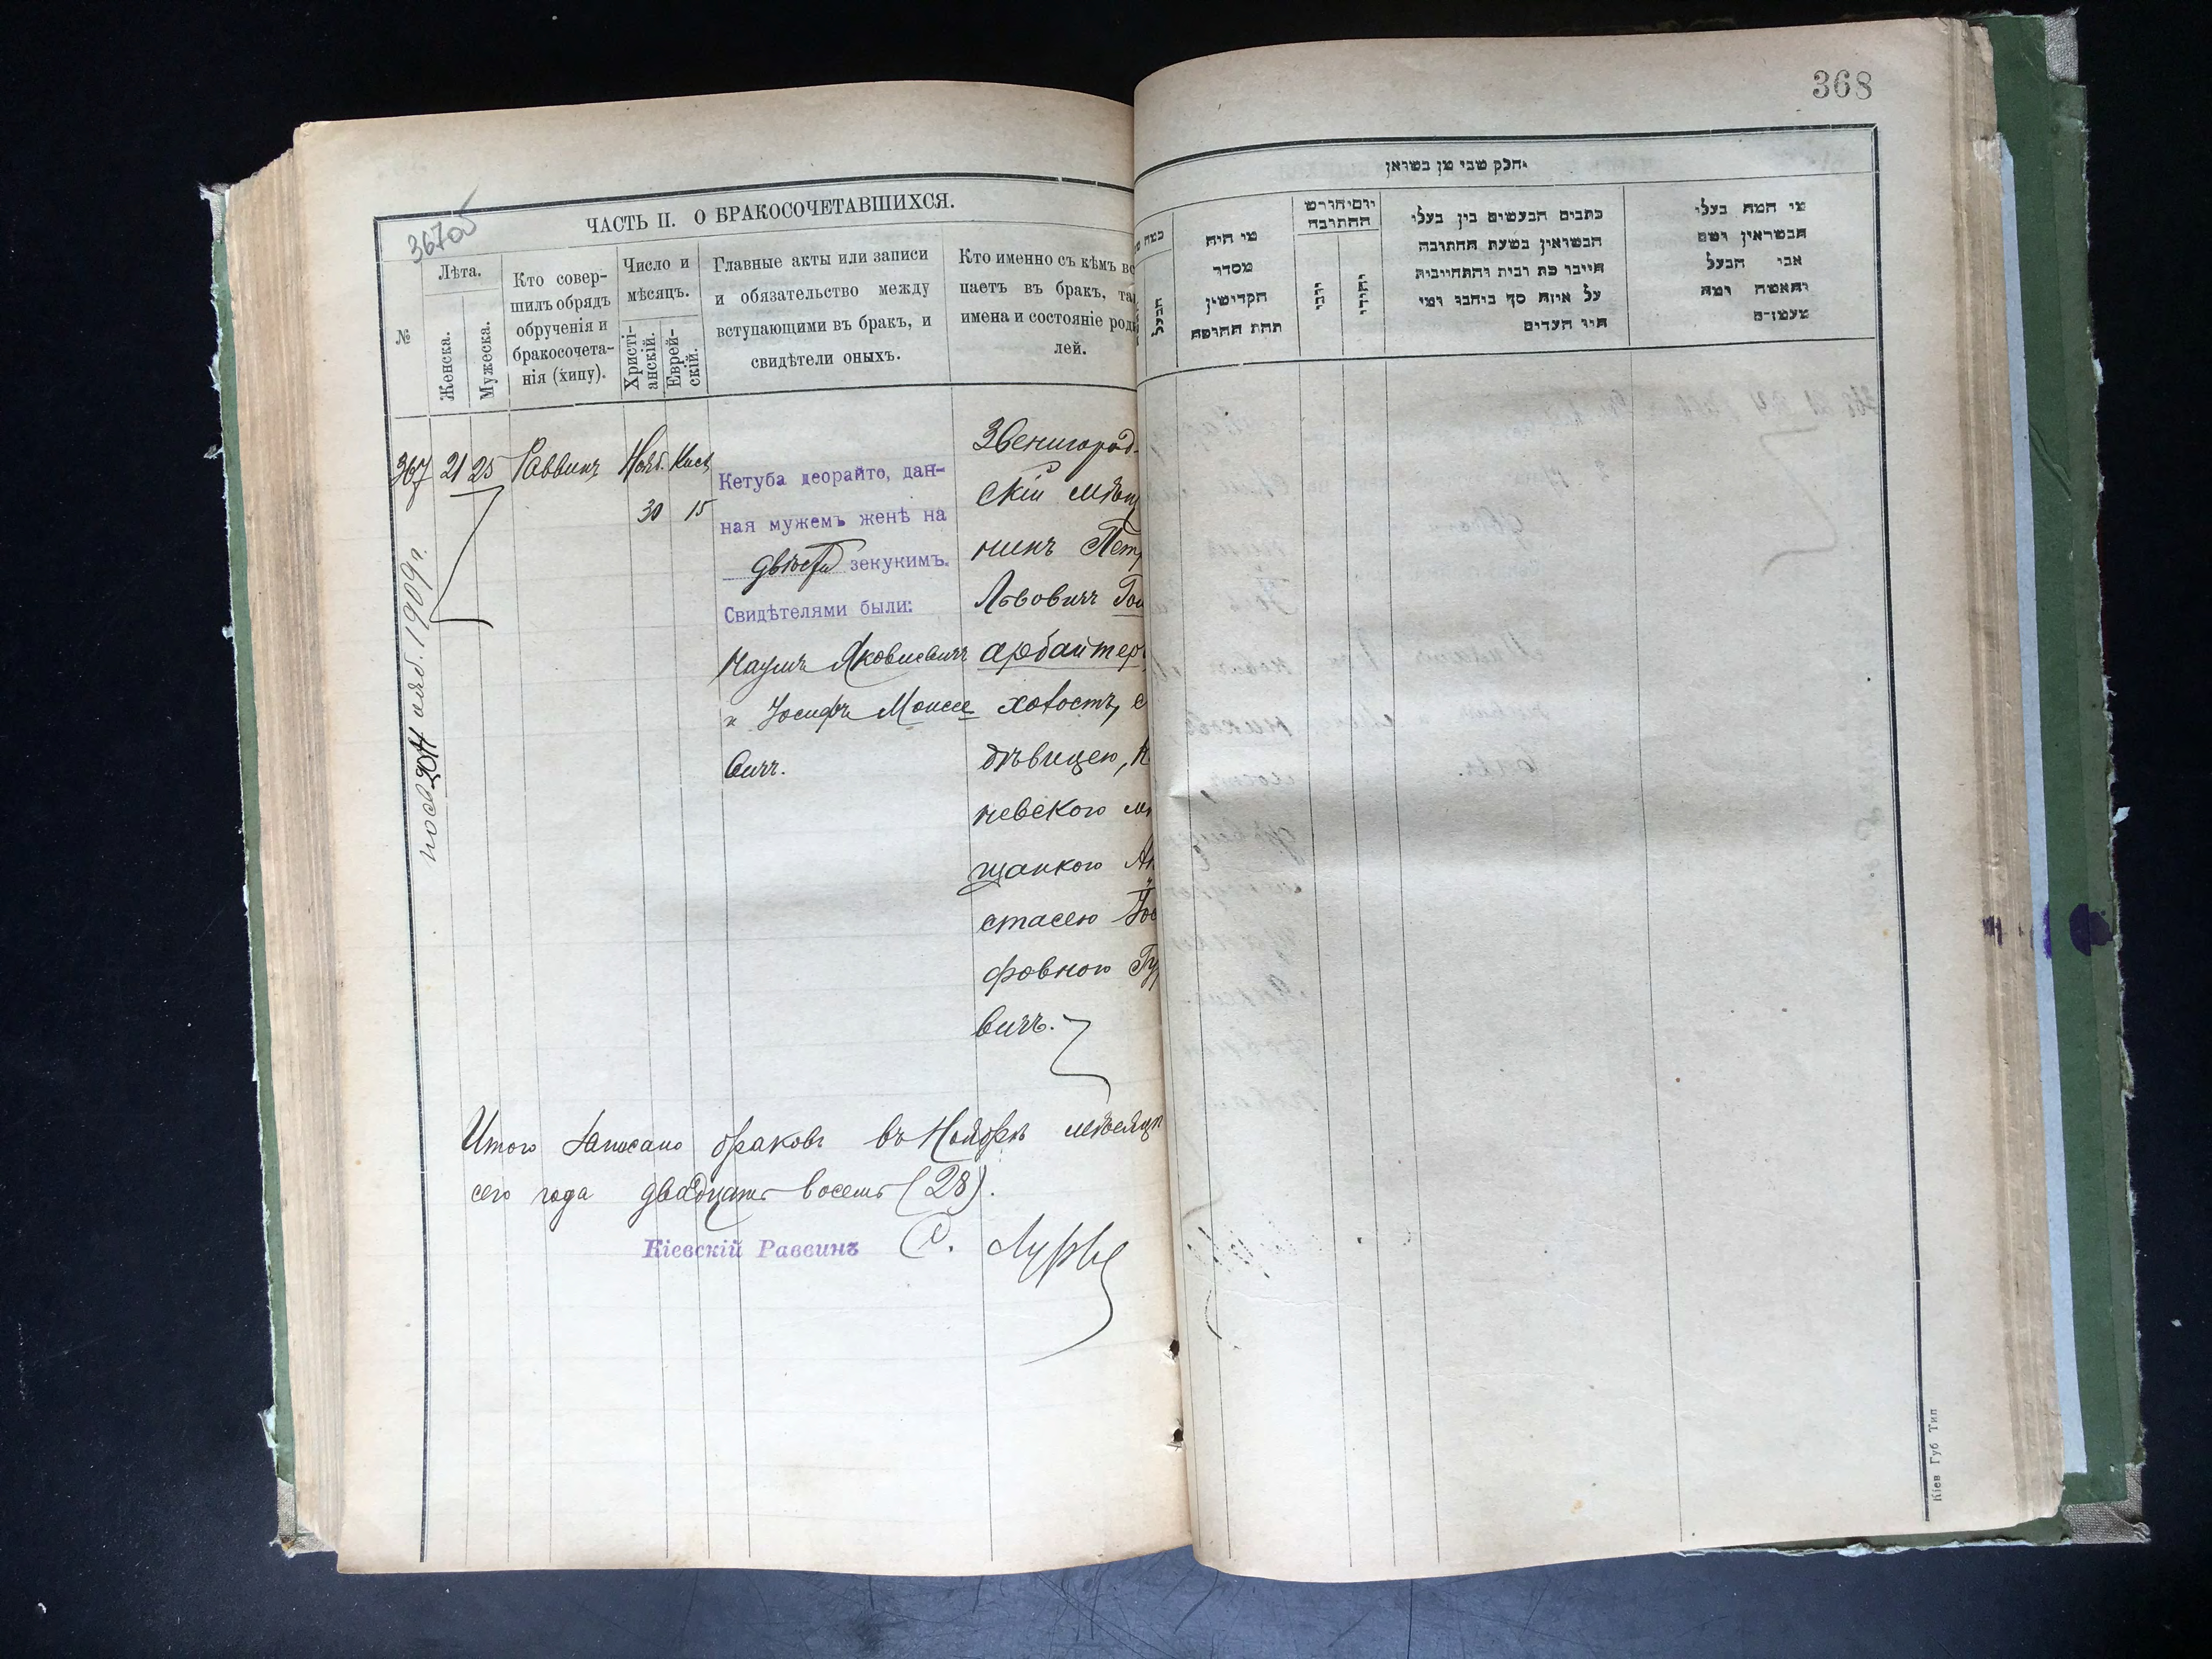 367об
ЧАСТЬ II. О БРАКОСОЧЕТАВШИХСЯ.
№
Лѣта.
Женска.
Мужеска.
Кто совер-
шилъ обрядъ
обрученія и
бракосочета-
нія (хипу).
Число и
мѣсяцъ.
Христі-
анскій.
Еврей-
скій.
Главные акты или записи
и обязательство между
вступающими въ бракъ, и
свидѣтели оныхъ.
Кто именно съ кѣмъ вс
паетъ въ бракъ, та
имена и состояніе род
лей.
367 21 25 Раввинъ Нояб. Кисл
30 15
Кетуба деорайто, дан-
ная мужемъ женѣ на
двѣсти зекукимъ.
Свидѣтелями были:
Наумъ Яковлевичъ
и Іосифъ Моисее
вичъ.
Звенигород-
скій мѣщ
нинъ Пет
Львовичъ Гол
арбайтеръ
холостъ, с
дѣвицею, К
невского мѣ
щанкою Ан
стасею Іос
фовною Гу
вичъ.
нояб. 1909 г.
Итого записано браковъ въ Ноябрѣ мѣсяцѣ
сего года двадцать восемь (28).
Кіевскій Раввинъ С. Лурье
368
חלק שני מן נשואן
מי היה
מסדר
הקדושין
תחת החופה
הבעל
יום וחודש
החתונה
יהודי
כתבים הנעשים בין בעלי
הנשואין בשעת החתונה
היינו כת רבית והתחייבות
על איזה סך ניתנו ומי
היו העדים
מי המה בעלי
הנשואין ושם
אבי הבעל
והאשה ומה
מעמדם
Кіев Губ Тип